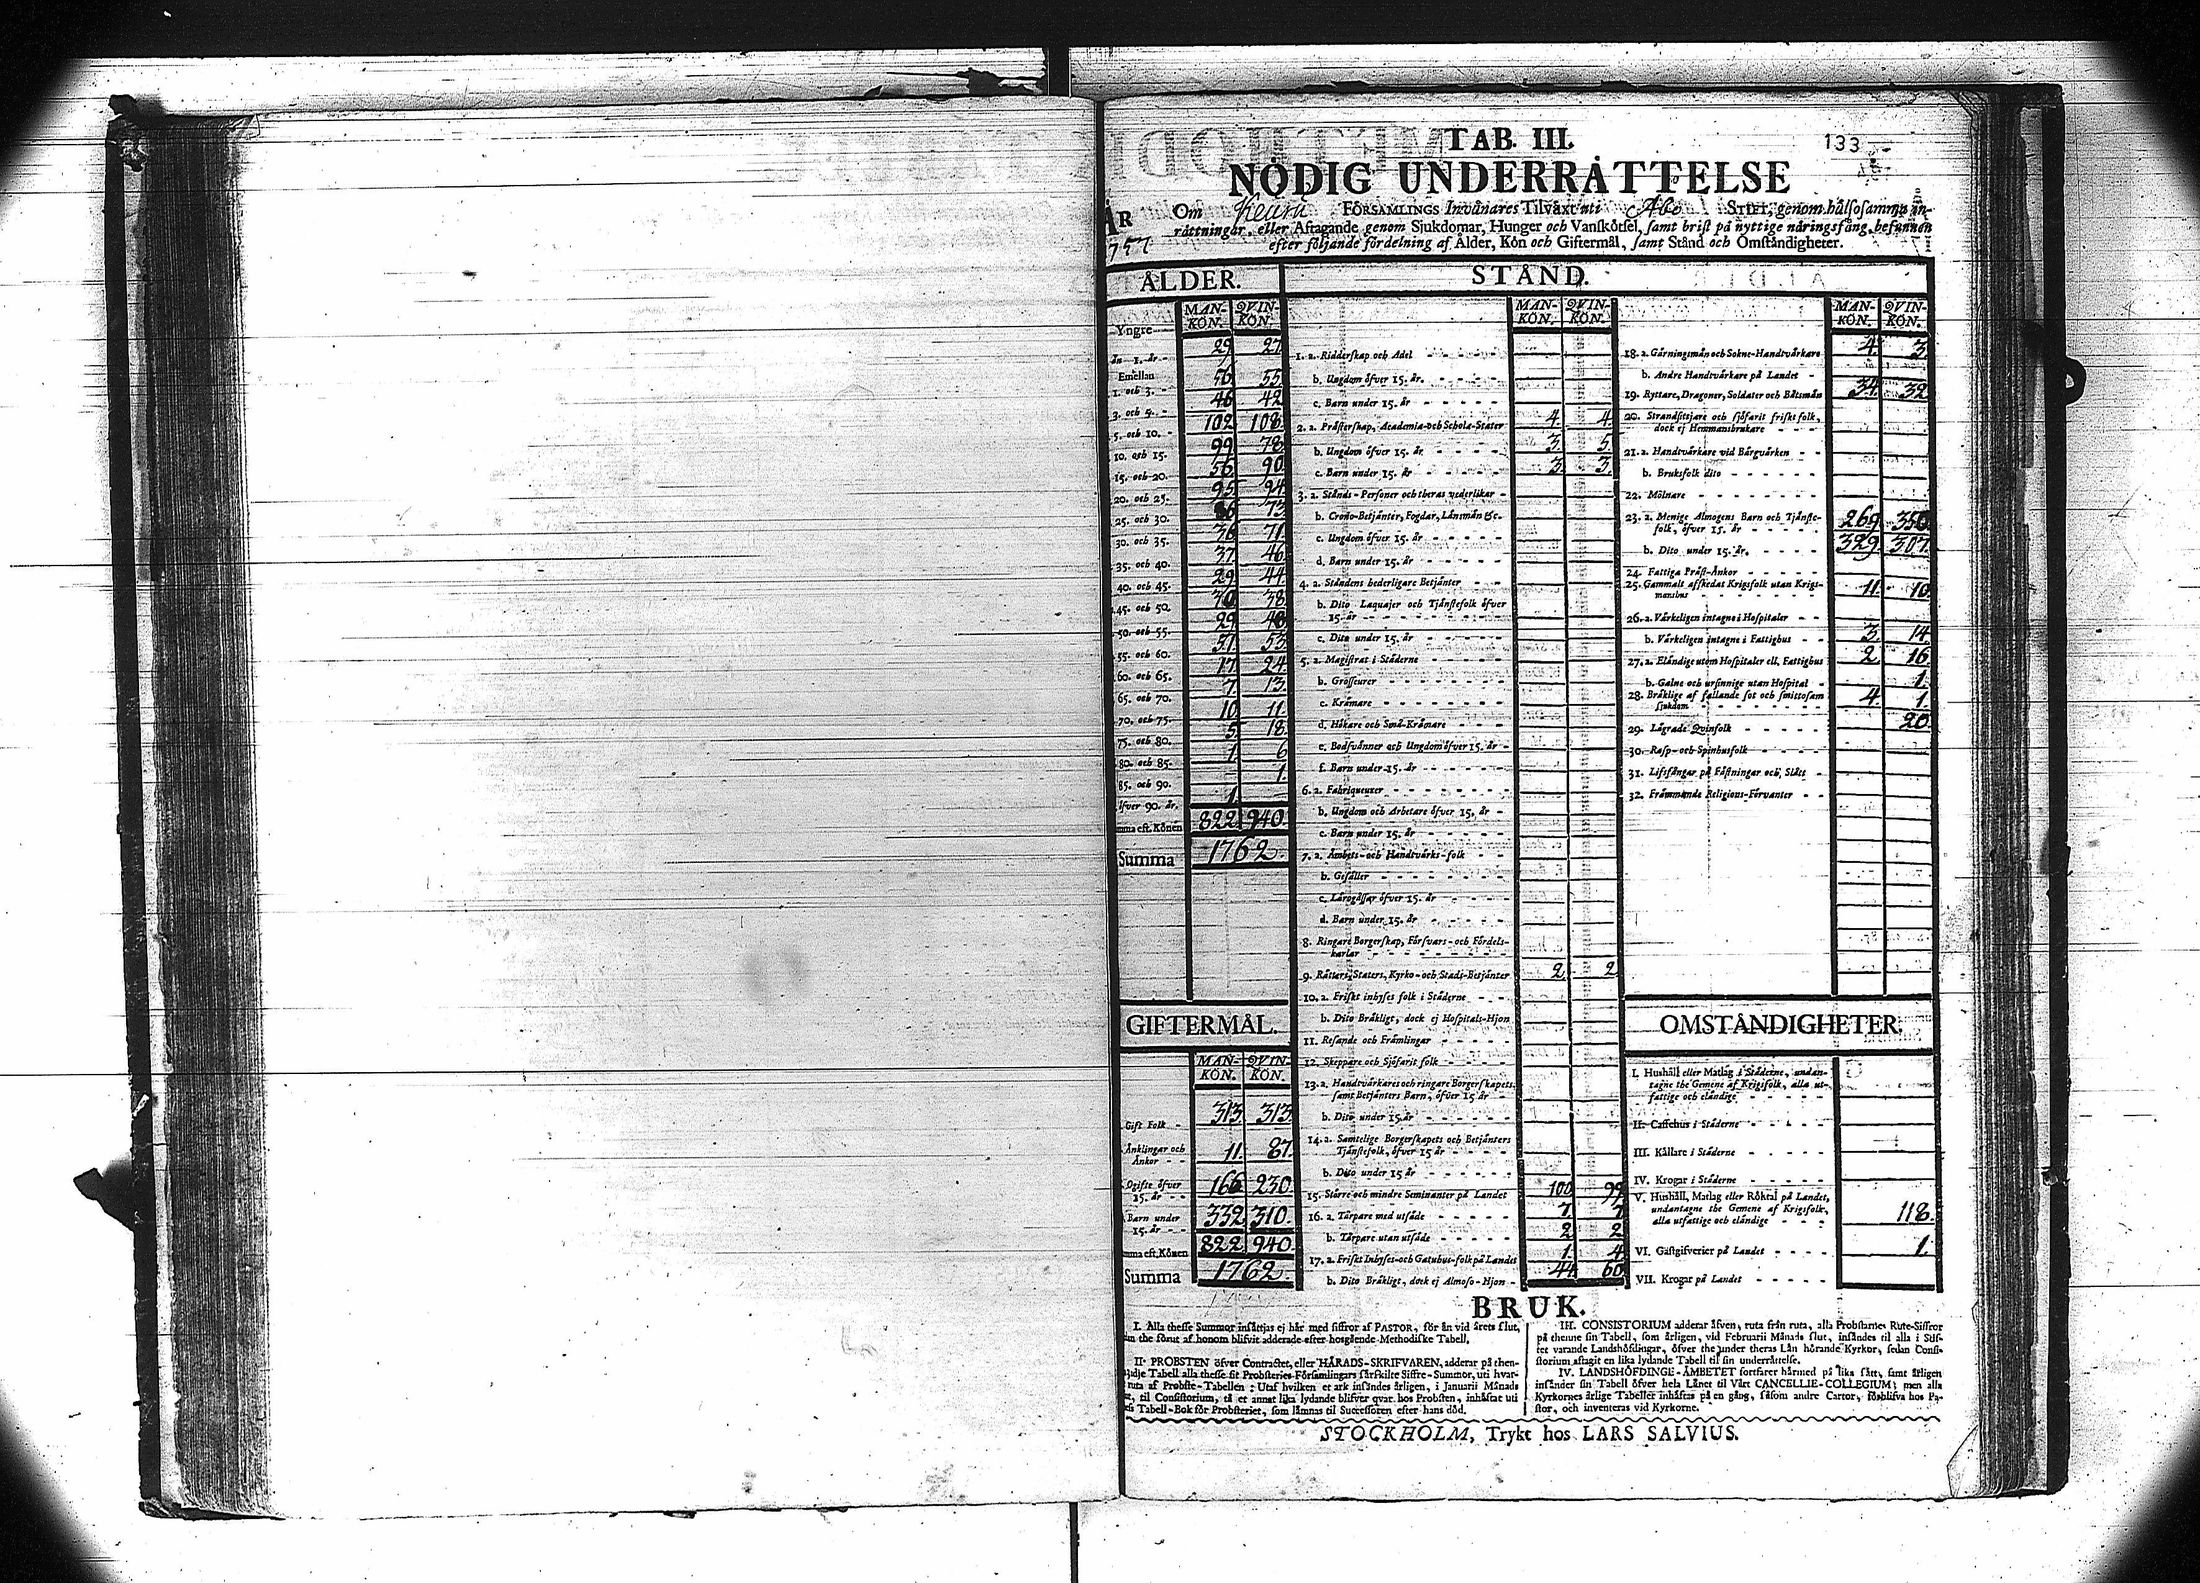 133
TAB. III.
NÖDIG UNDERRÅTTELSE
ÅR 1757
Om Keuru FÖRSAMLINGS Invånares Tilväxt uti Åbo STIFT, genom hålsosamma in-
råttningar, eller Aftagande genom Sjukdomar, Hunger och Vanskötsel, samt brist på nyttige näringsfång, befunnen
efter följande fördelning af Ålder, Kön och Giftermål, samt Stånd och Omståndigheter.
ÅLDER.
MAN-KÖN. QVIN-KÖN.
Yngre
än 1. år - 29 27
Emellan
1. och 3. - 56 55
3. och 5. - 46 42
5. och 10. - 102 108
10. och 15. 99 78
15. och 20. 56 90
20. och 25. 95 94
25. och 30. 73
30. och 35. 36 71
35. och 40. 37 46
40. och 45. 29 44
45. och 50. 30 38
50. och 55. 29
55. och 60. 53
60. och 65. 17 24
65. och 70. 7 13
70. och 75. 10 11
75. och 80. 5 18
80. och 85. 1 6
85. och 90. 1
öfver 90. år. 1
ma eft. Könen 822 940
Summa 1762
GIFTERMÅL.
MAN-KÖN. QVIN-KÖN.
Gift Folk - 313 313
Änklingar och
Änkor - - 11 87
Ogifte öfver
15. år - - 166 230
Barn under
15. år - - 332 310
ma eft. Könen 822 940
Summa 1762
STÅND.
MAN-KÖN. QVIN-KÖN.
1. a. Ridderskap och Adel
b. Ungdom öfver 15. år.
c. Barn under 15. år
2. a. Prästerskap, Academia- och Schola-Stater 4 4
b. Ungdom öfver 15. år 3 5
c. Barn under 15. år 3 3
3. a. Stånds-Personer och theras vederlikar
b. Crono-Betjänter, Fogdar, Länsmän &c.
c. Ungdom öfver 15. år
d. Barn under 15. år
4. a. Ståndens hederligare Betjänter
b. Dito Laquajer och Tjänstefolk öfver
15. år
c. Dito under 15. år
5. a. Magistrat i Städerne
b. Grosseurer
c. Krämare
d. Hökare och Små-Krämare
e. Bodsvänner och Ungdom öfver 15. år
f. Barn under 15. år
6. a. Fabriqueurer
b. Ungdom och Arbetare öfver 15. år
c. Barn under 15. år
7. a. Ämbets- och Handtvärks-folk
b. Gesäller
c. Lärogåssar öfver 15. år
d. Barn under 15. år
8. Ringare Borgerskap, Försvars- och Fördels-
karlar
9. Rätters, Staters, Kyrko- och Stads-Betjänter 2 2
10. a. Friskt inhyses folk i Städerne
b. Dito Bräkligt, dock ej Hospitals-Hjon
11. Resande och Främlingar
12. Skeppare och Sjöfarit folk
13. a. Handtvärkares och ringare Borgerskapets,
samt Betjänters Barn, öfver 15 år
b. Dito under 15. år
14. a. Samtelige Borgerskapets och Betjänters
Tjänstefolk, öfver 15 år
b. Dito under 15 år
15. Större och mindre Heminanter på Landet 100 99
16. a. Torpare med utsäde 7 7
b. Torpare utan utsäde 2 2
17. a. Friskt Inhyses- och Gatuhus-folk på Landet 1 4
b. Dito Bräkligt, dock ej Almoso-Hjon 44 60
MAN-KÖN. QVIN-KÖN.
18. a. Gärningsmän och Sokne-Handtvärkare 4 3
b. Andre Handtvärkare på Landet
19. Ryttare, Dragoner, Soldater och Båtsmän 34 32
20. Strandsittjare och sjöfarit friskt folk,
dock ej Hemmansbrukare
21. a. Handtvärkare vid Bärgvärken
b. Bruksfolk dito
22. Mölnare
23. a. Menige Almogens Barn och Tjänste-
folk, öfver 15. år 269 350
b. Dito under 15. år. 329 307
24. Fattiga Präst-Änkor
25. Gammalt afskedat Krigsfolk utan Krigs-
manshus 11 10
26. a. Värkeligen intagne i Hospitaler
b. Värkeligen intagne i Fattighus 3 14
27. a. Eländige utom Hospitaler ell. Fattighus 2 16
b. Galne och ursinnige utan Hospital 1
28. Bräklige af fallande sot och smittosam
sjukdom 4 1
29. Lägrade Qvinfolk 20
30. Rasp- och Spinhusfolk
31. Lifsfångar på Fästningar och Slått
32. Främmande Religions-Förvanter
OMSTÅNDIGHETER.
I. Hushåll eller Matlag i Städerne, undan-
tagne the Gemene af Krigsfolk, alla ut-
fattige och eländige
II. Caffehus i Städerne
III. Källare i Städerne
IV. Krogar i Städerne
V. Hushåll, Matlag eller Röktal på Landet,
undantagne the Gemene af Krigsfolk,
alla utfattige och eländige 118
VI. Gästgifverier på Landet 1
VII. Krogar på Landet
BRUK.
I. Alla thesse Summor insättjas ej här med siffror af PASTOR, för än vid årets slut,
the förut af honom blifvit adderade efter hosgående Methodiske Tabell,
II. PROBSTEN öfver Contractet, eller HÄRADS-SKRIFVAREN, adderar på then-
Tabell alla thesse sit Probsteries Församlingars särskilte Siffre-Summor, uti hvar-
ruta af Probste-Tabellen; Utaf hvilken et ark insändes årligen, i Januarii Månads
, til Consistorium, til et annat lika lydande blifver qvar hos Probsten, inhäftat uti
Tabell-Bok för Probsteriet, som lämnas til Successoren efter hans död.
III. CONSISTORIUM adderar äfven, ruta från ruta, alla Probstarnes Rute-Siffror
på thenne sin Tabell, som årligen, vid Februarii Månads slut, insändes til alla i Stif-
tet varande Landshöfdingar, öfver the under theras Län hörande Kyrkor, sedan Consi-
storium aftagit en lika lydande Tabell til sin underrättelse.
IV. LANDSHÖFDINGE-ÄMBETET fortfarer härmed på lika sätt, samt årligen
insänder sin Tabell öfver hela Länet til Vårt CANCELLIE-COLLEGIUM; men alla
Kyrkornes årlige Tabeller inhäftas på en gång, såsom andre Cartor, förblifva hos Pa-
stor, och inventeras vid Kyrkorne.
STOCKHOLM, Trykt hos LARS SALVIUS.